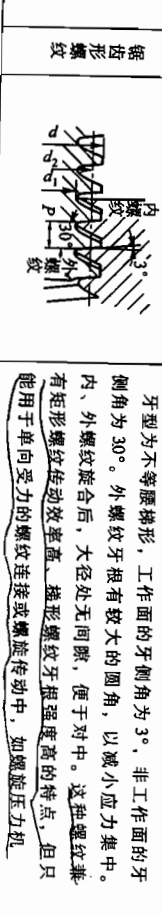 锯齿形螺纹
内螺纹
3°
30°
外螺纹
P
d
d₂
d₁
牙型为不等腰梯形，工作面的牙侧角为3°，非工作面的牙
侧角为30°。外螺纹牙根有较大的圆角，以减小应力集中。
内、外螺纹旋合后，大径处无间隙，便于对中。这种螺纹兼
有矩形螺纹传动效率高、梯形螺纹牙根强度高的特点，但只
能用于单向受力的螺纹连接或螺旋传动中，如螺旋压力机